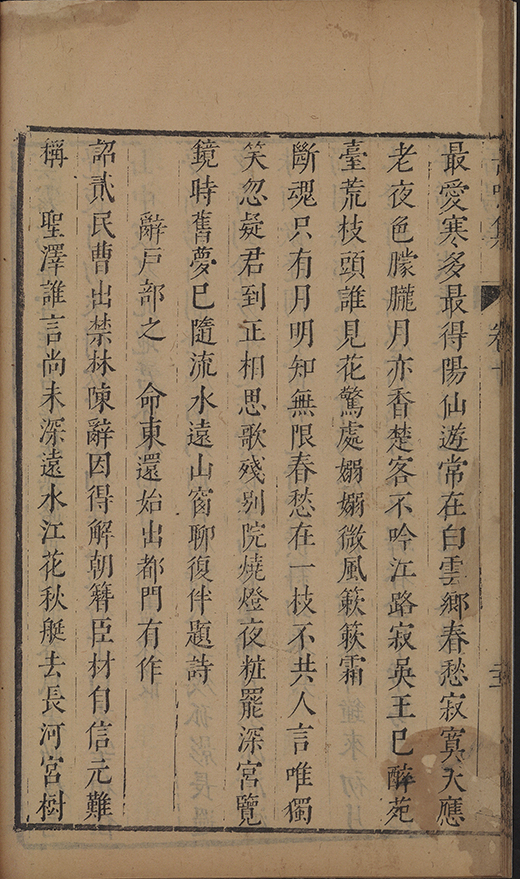 集 卷十
最愛寒多最得陽仙遊常在白雲鄉春愁寂寞天應
老夜色朦朧月亦香楚客不吟江路寂吳王已醉苑
臺荒枝頭誰見花驚處嫋嫋微風簌簌霜
斷魂只有月明知無限春愁在一枝不共人言唯獨
笑忽疑君到正相思歌殘别院燒燈夜粧罷深宮覽
鏡時舊夢已隨流水遠山窗聊復伴題詩
辭戶部之 命東還始出都門有作
詔貳民曹出禁林陳辭因得解朝簪臣材自信元難
稱 聖澤誰言尚未深遠水江花秋艇去長河宮樹